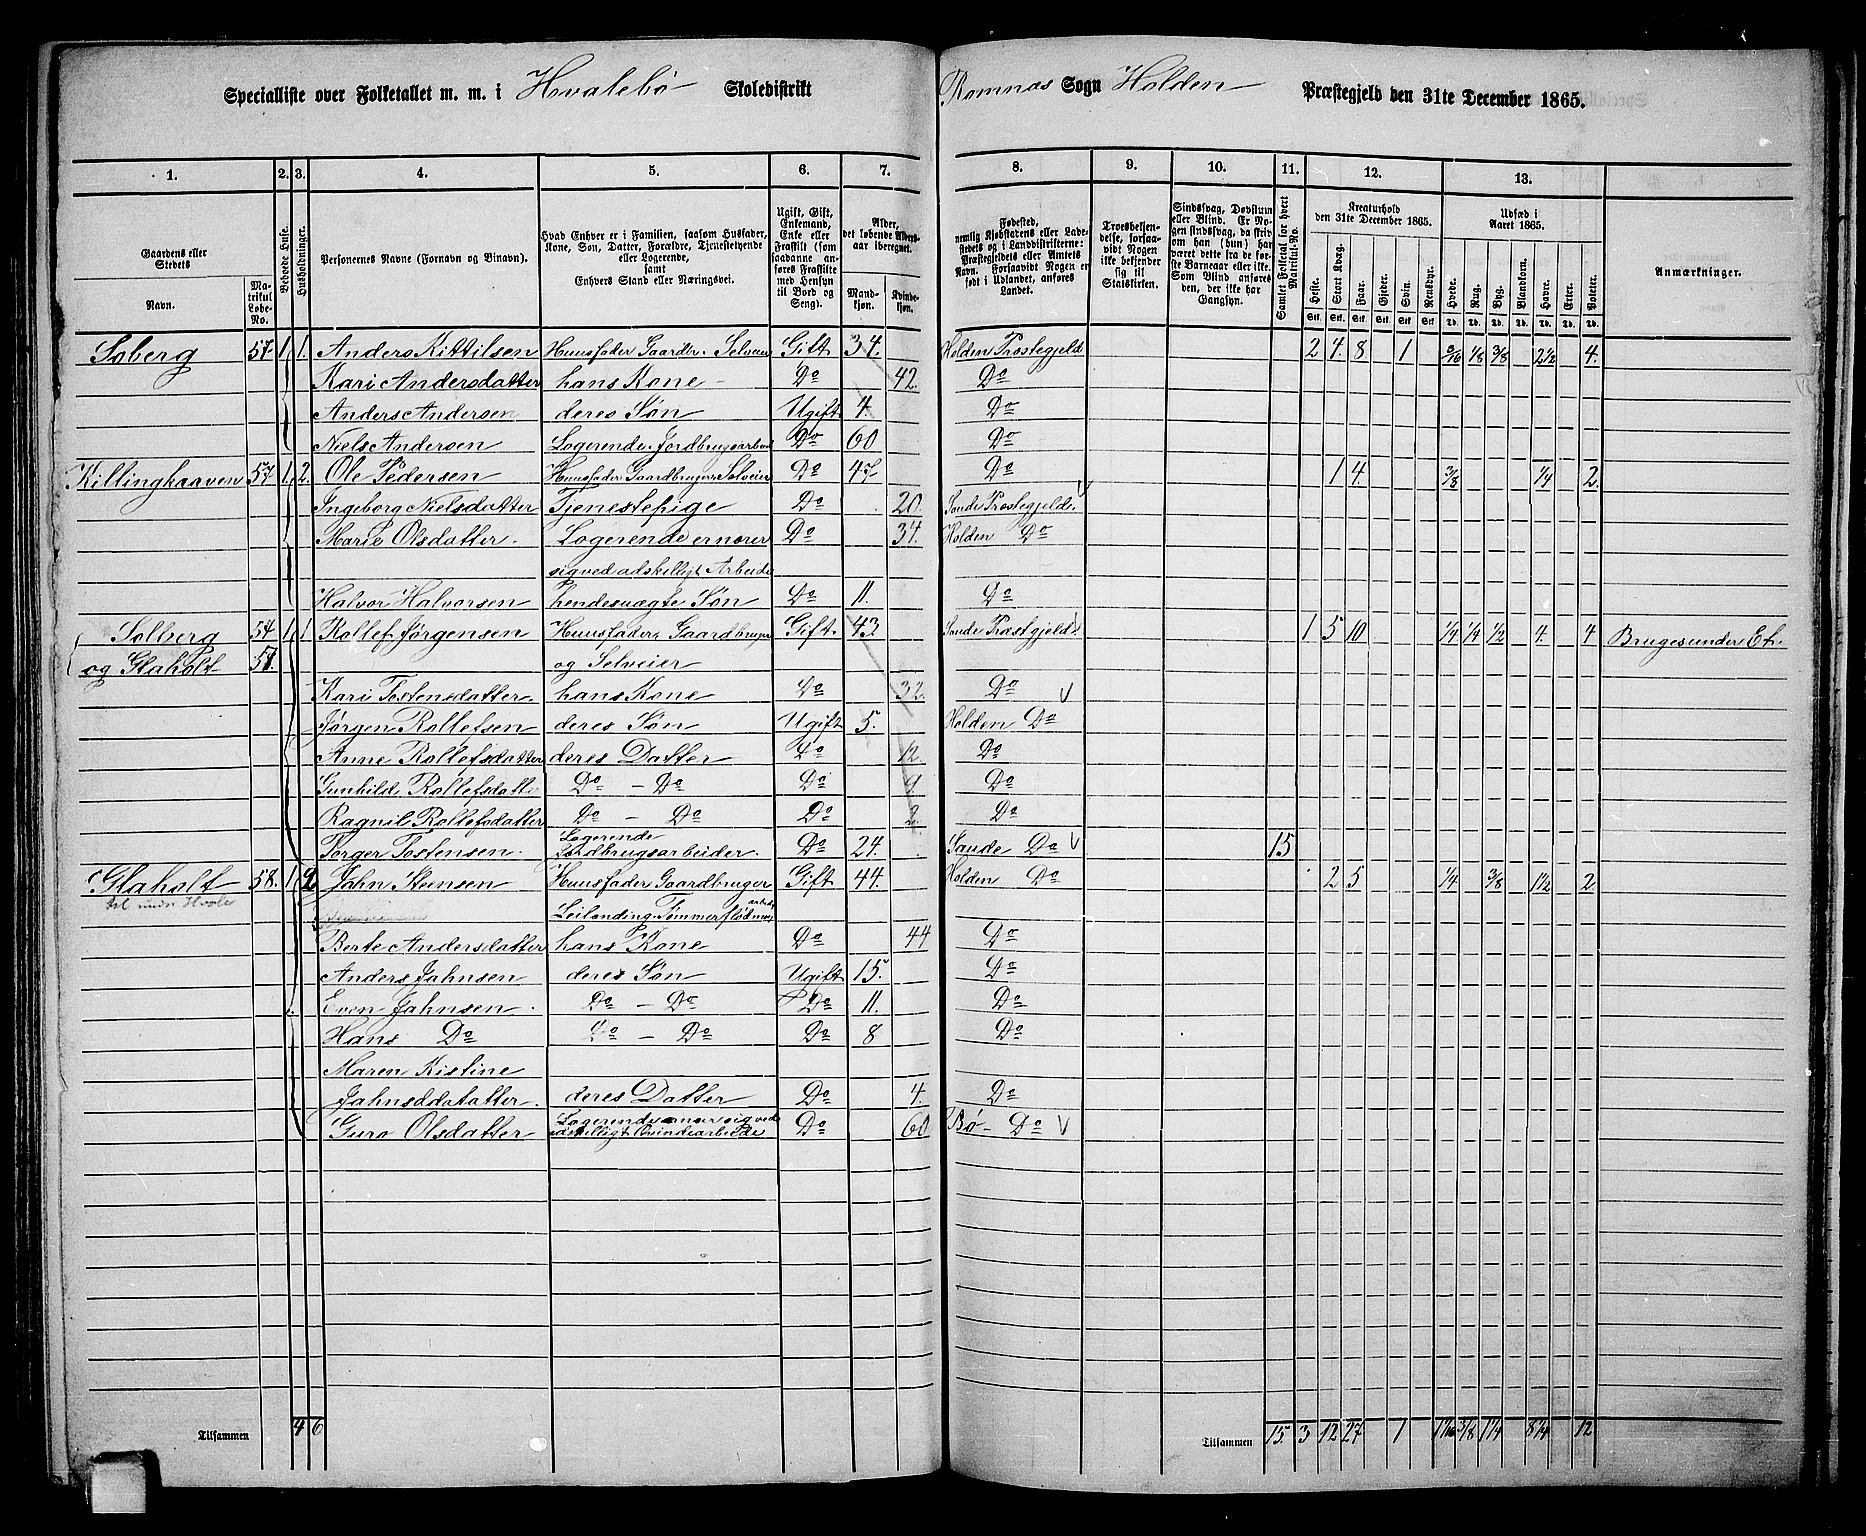 Specialliste over Folketallet m. m. i Hvalebø Skoledistrikt Romnæs Sogn Holden Præstegjeld den 31te December 1865.
1. 2. 3. 4. 5. 6. 7. 8. 9. 10. 11. 12. 13.
Gaardens eller Stedets
Navn.
Matrikul Løbe-No.
Beboede Huse.
Husholdninger.
Personernes Navne (Fornavn og Binavn).
Hvad Enhver er i Familien, saasom Husfader, Kone, Søn, Datter, Forældre, Tjenestetyende eller Logerende, samt Enhvers Stand eller Næringsvei.
Ugift, Gift, Enkemand, Enke eller Fraskilt (som saadanne anføres Fraskilte med Hensyn til Bord og Seng).
Alder, det løbende Aldersaar iberegnet.
Mandkjøn. Kvindekjøn.
Fødested, nemlig Kjøbstadens eller Ladestedets og i Landdistrikterne: Præstegjeldets eller Amtets Navn. Forsaavidt Nogen er født i Udlandet, anføres Landet.
Troesbekjendelse, forsaavidt Nogen ikke bekjender sig til Statskirken.
Sindssvag, Døvstum eller Blind. Er Nogen sindssvag, da skrives om han (hun) har været dette fra de første Barneaar eller ikke. Som Blind anføres den, der ikke har Gangsyn.
Samlet Folketal for hvert Matrikul-No.
Kreaturhold den 31te December 1865.
Heste. Stort Kvæg. Faar. Gjeder. Svin. Rensdyr.
Udsæd i Aaret 1865.
Hvede. Rug. Byg. Blandkorn. Havre. Erter. Poteter.
Anmærkninger.
Stk. Stk. Stk. Stk. Stk. Stk. Td. Td. Td. Td. Td. Td. Td.
Soberg 57 1 1. Anders Kittilsen Huusfader Gaardbr. Selveier Gift 34. Holden Præstegjeld 2 4 8 1 3/16 1/8 3/8 2 1/2 4.
Kari Andersdatter hans Kone Do 42. Do
Anders Andersen deres Søn Ugift 4. Do
Niels Andersen Logerende, Jordbrugsarbeid Do 60 Do
Killingkaaven 57 1 2. Ole Pedersen Huusfader Gaardbruger Selveier Do 47 Do 1 4. 3/8 1/4 2.
Ingeborg Nielsdatter Tjenestepige Do 20. Sande Præstegjeld.
Marie Olsdatter. Logerende ernærer Do 34. Holden Do
sig ved adskilligt Arbeide
Halvor Halvorsen hendes uægte Søn Do 11. Do
Solberg 54 1 1 Rollef Jørgensen Huusfader, Gaardbruger Gift 43. Sande Præstgjeld. 1 5 10 1/4 1/4 1/2 4. 4 Bruges under Et.
og Glaholt 57. og Selveier
Kari Tostensdatter. hans Kone Do 32. Do
Jørgen Rollefsen deres Søn Ugift 5. Holden Do
Anne Rollefsdatter deres Datter Do 12. Do
Gunhild Rollefsdatte Do - Do Do 9 Do
Ragnil Rollefsdatter Do - Do Do 2. Do
Torger Tostensen. Logerende Jordbrugsarbeider. Do 24. Sande Do 15
Glaholt 58. 1 2 Jahn Steensen Huusfader Gaardbruger Gift 44. Holden Do 2 5 1/4 3/8 1 1/2 2
Leilending. Tømmerflødning
Berte Andersdatter hans Kone Do 44 Do
Anders Jahnsen deres Søn Ugift 15. Do
Even Jahnsen. Do - Do Do 11. Do
Hans Do Do - Do Do 8 Do
Maren Kistine
Jahnsddatatter. deres Datter Do 4. Do
Guro Olsdatter Logerende ernær sig ved adskilligt Qvindearbeide Do 60 Bø - Do
Tilsammen 4 6 Tilsammen 15. 3 12 27 1 1 1/16 3/8 1 1/4 8 1/4 12